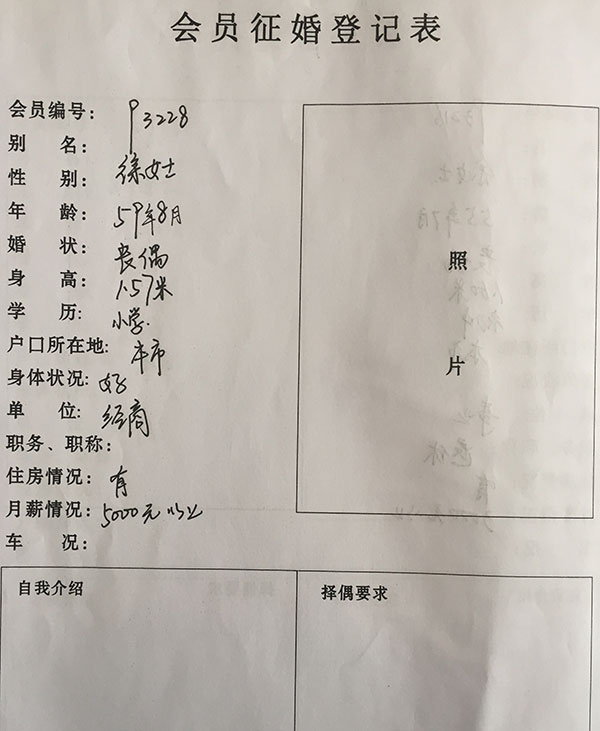 会员征婚登记表
会员编号: P3228
别 名:
性 别: 徐女士
年 龄: 59年8月
婚 状: 丧偶
身 高: 1.57米
学 历: 小学.
户口所在地: 本市
身体状况: 好
单 位: 经商
职务、职称:
住房情况: 有
月薪情况: 5000元以上
车 况:
照
片
自我介绍
择偶要求